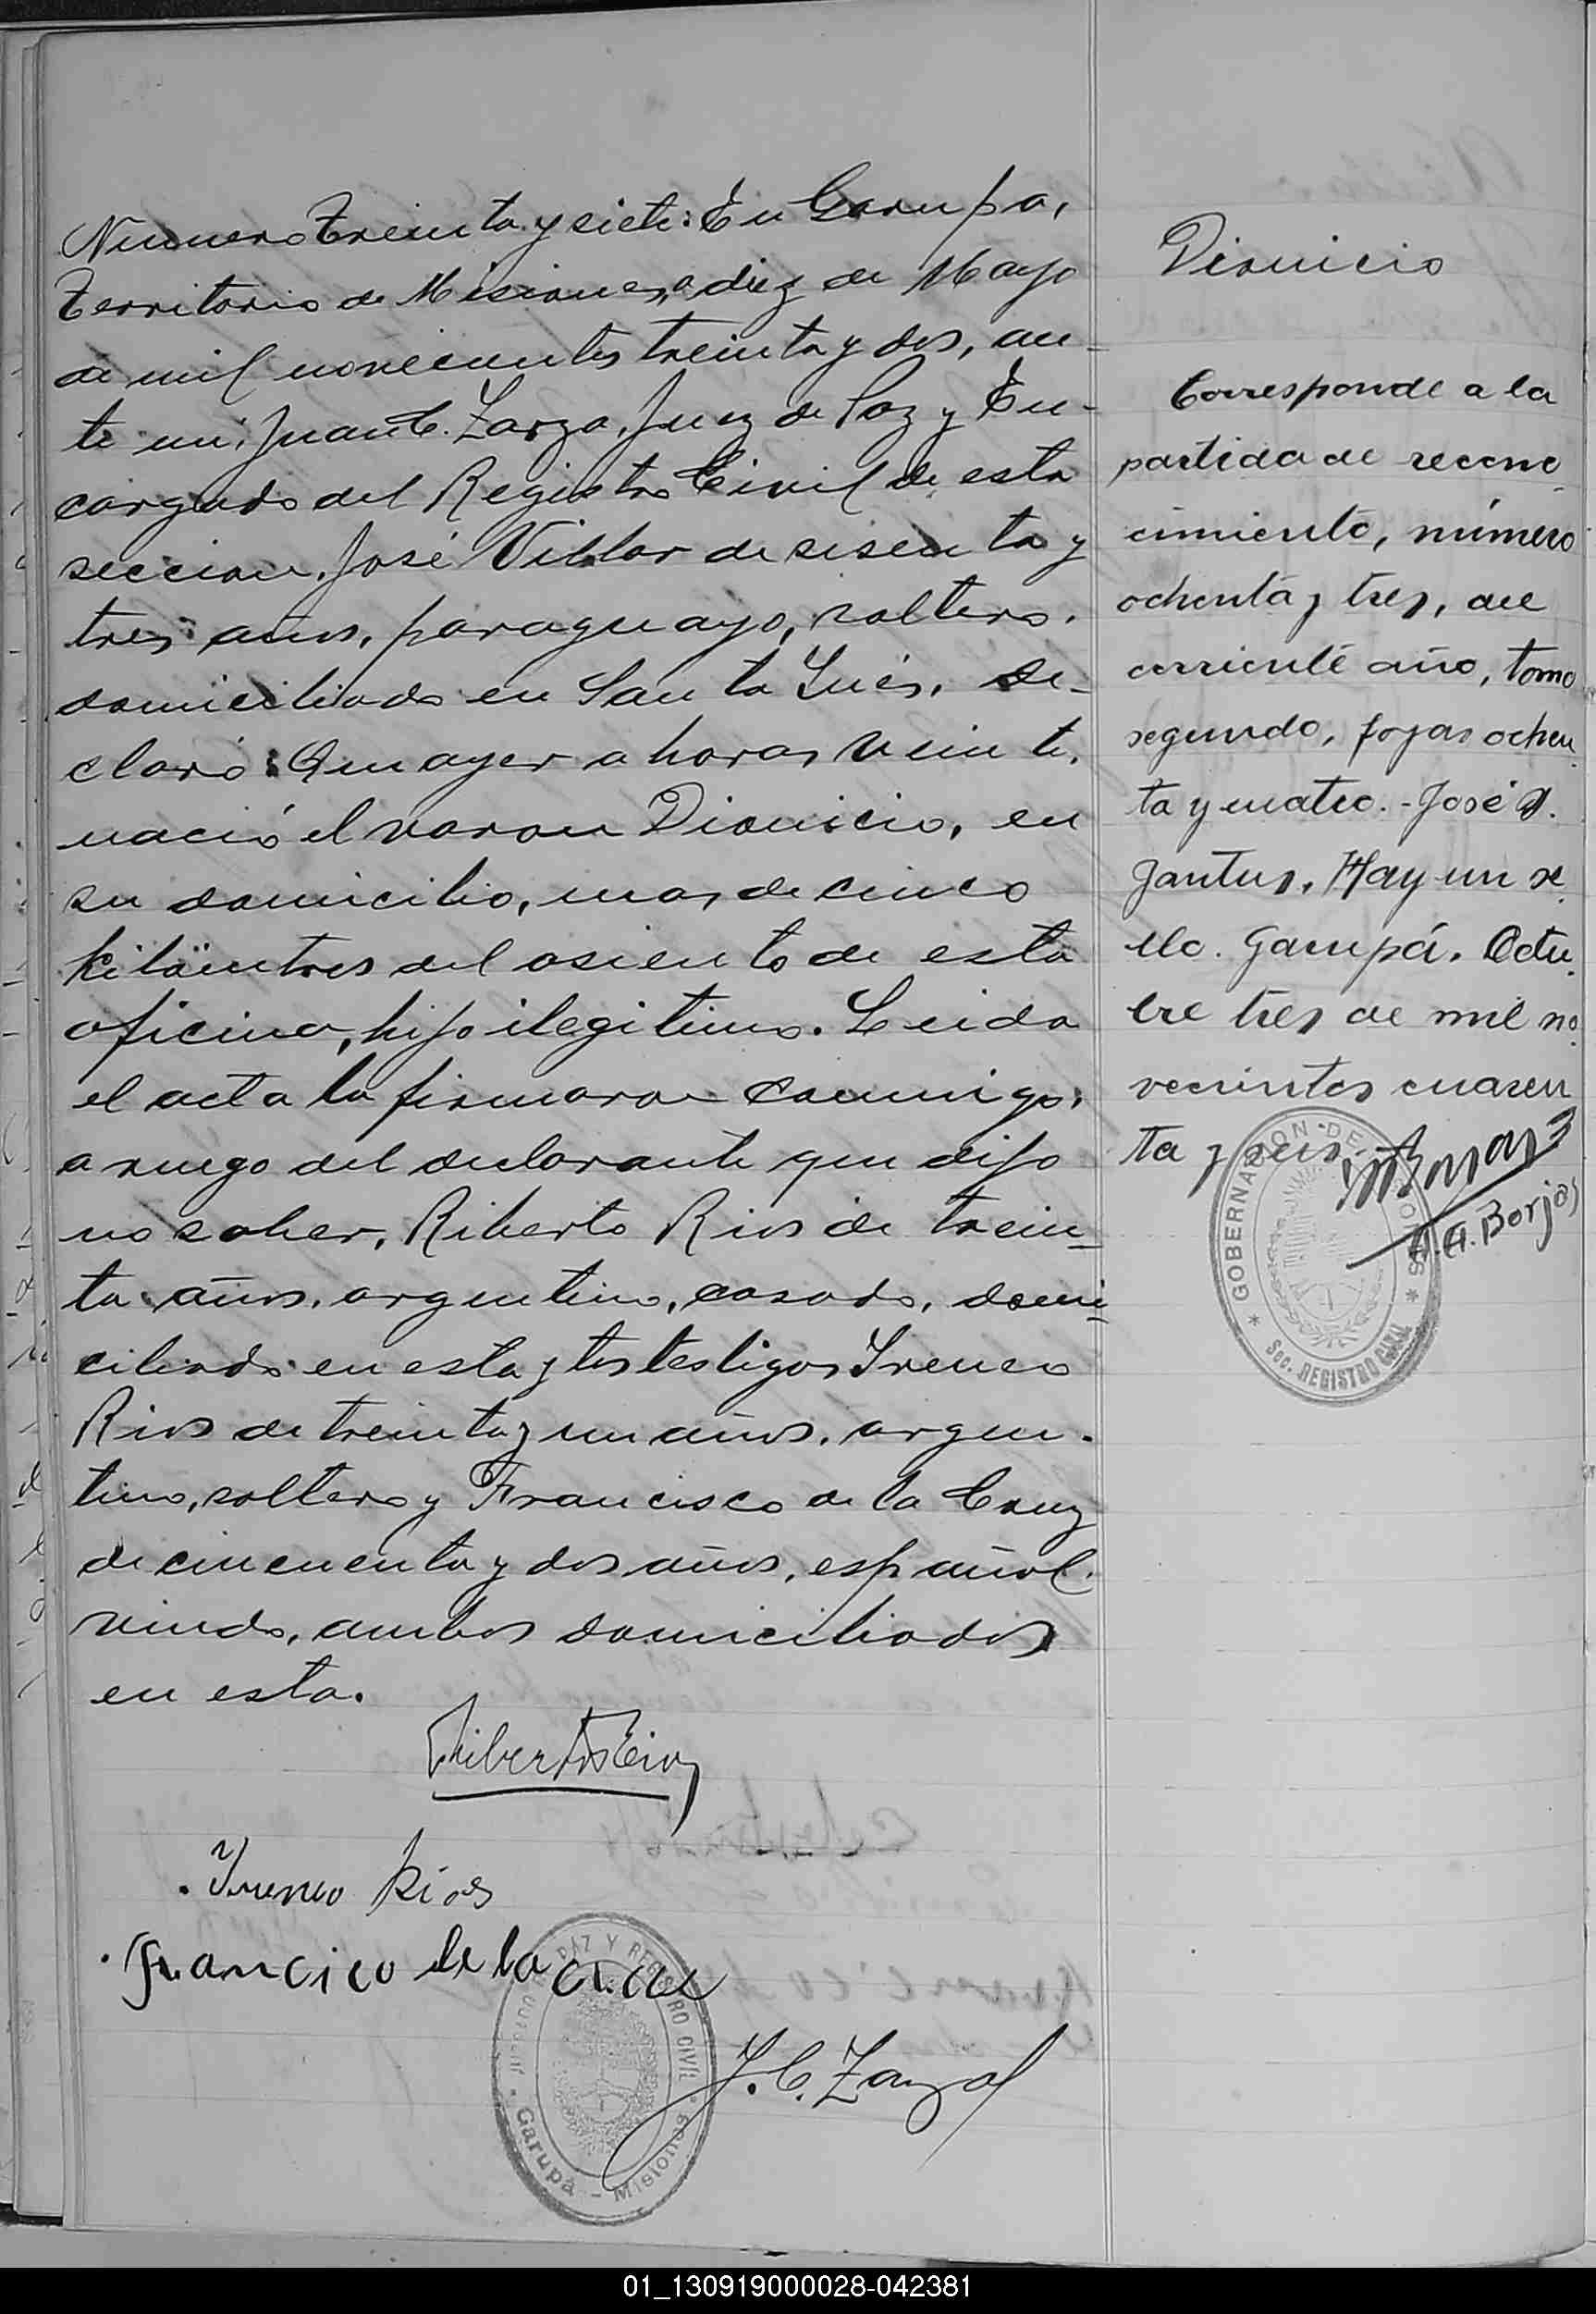 Numero Treinta y siete: En Garupa,
Territorio de Misiones, a diez de Mayo
de mil novecientos treinta y dos, an-
te mi, Juan C. Zarza, Juez de Paz y En-
cargado del Registro Civil de esta
seccion, José Villar de sesenta y
tres años, paraguayo, soltero,
domiciliado en Santa Inés, de-
claró: Que ayer a horas veinte,
nació el varon Dionicio, en
su domicilio, mas de cinco
kilómtros del asiento de esta
oficina, hijo ilegitimo. Leida
el acta la firmaron conmigo,
a ruego del declarante que dijo
no saber, Riberto Rios de trein-
ta años, argentino, casado, domi-
ciliado en esta y los testigos Ireneo
Rios de treinta y un años, argen-
tino, soltero y Francisco de la Cruz
de cincuenta y dos años, español,
viudo, ambos domiciliados
en esta.
Riberto Rios
Ireneo Ríos
francico de la
J. C. Zarza
PAZ Y REGISTRO CIVIL
Garupá - Misiones
Dionicio
Corresponde a la
partida de recono
cimiento, número
ochenta y tres, del
corriente año, tomo
segundo, fojas ochen
ta y cuatro. - José
Jantus. Hay un se
llo. Garupá. Octu
bre tres de mil no
vecientos cuaren
ta y seis.
A. Borjas
GOBERNACION DE MISIONES
Sec. REGISTRO CIVIL
01_130919000028-042381